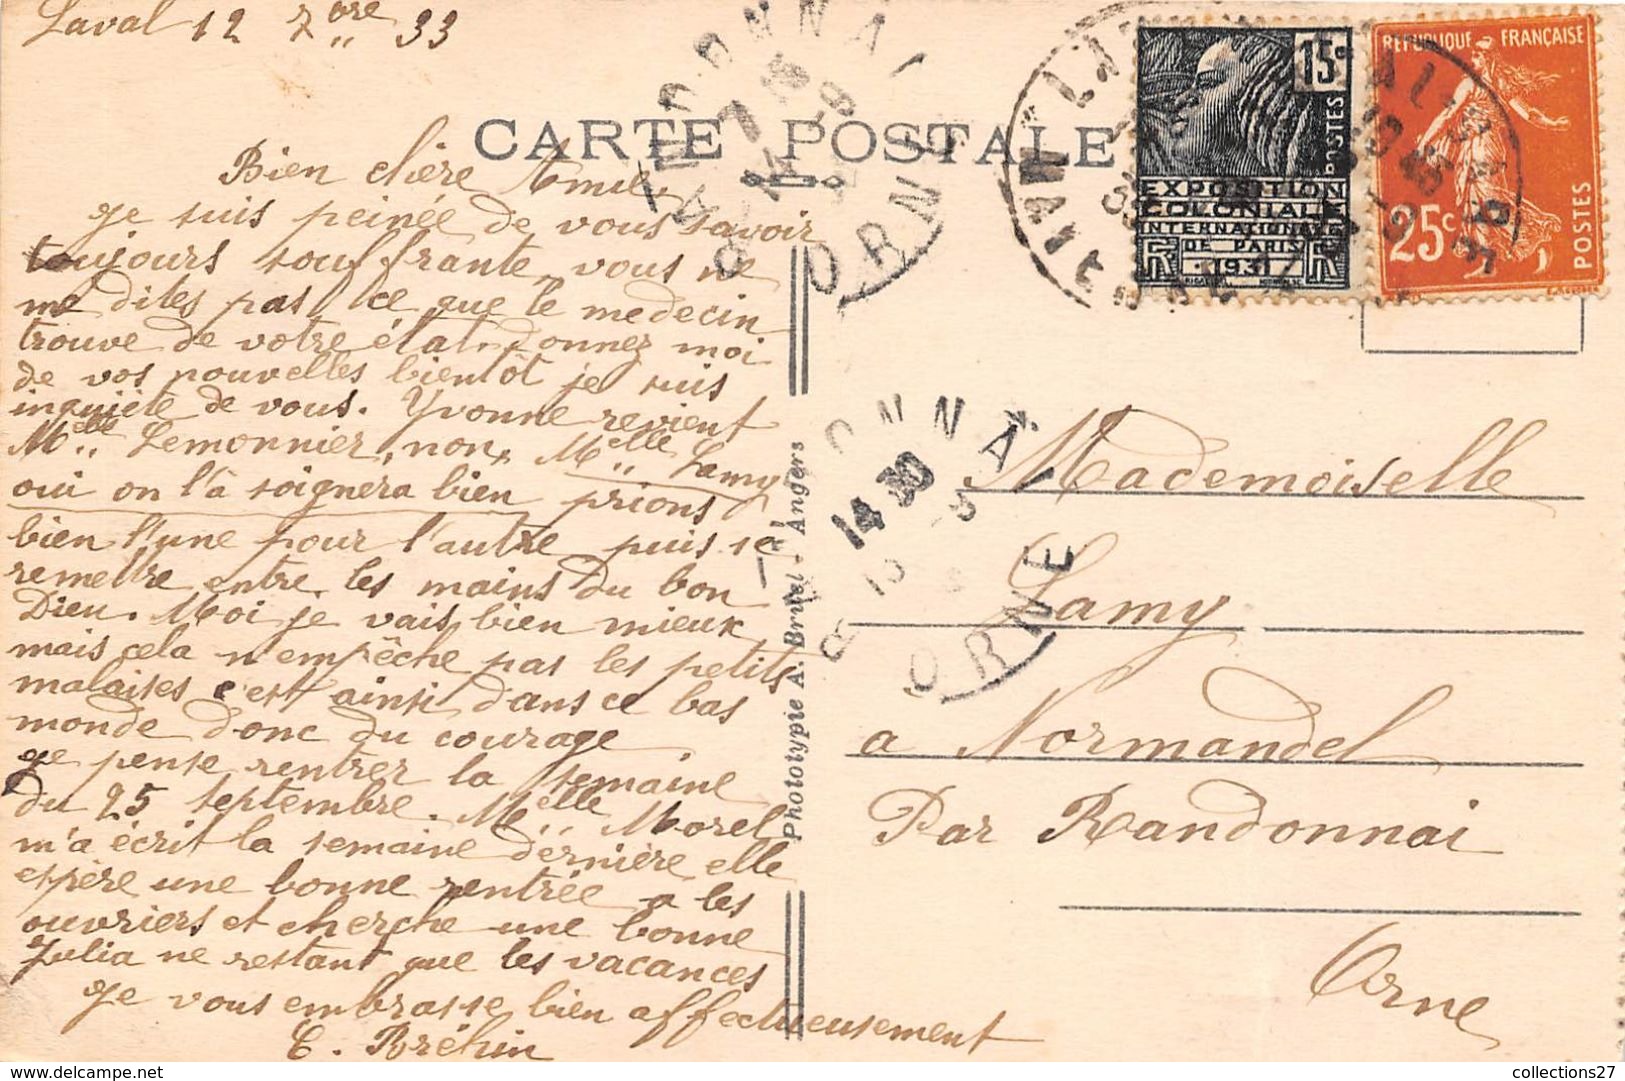 Laval 12 7bre 33
CARTE POSTALE
Bien chère Amie,
Je suis peinée de vous savoir
toujours souffrante, vous ne
me dites pas ce que le medecin
trouve de votre état, donnez moi
de vos nouvelles bientôt je suis
inquiète de vous. Yvonne revient
Melle Lemonnier, non, Melle Lamy
oui on l'a soignera bien prions
bien l'une pour l'autre puis se
remettre entre les mains du bon
Dieu. Moi je vais bien mieux
mais cela n'empêche pas les petits
malaises c'est ainsi dans ce bas
monde donc du courage.
Je pense rentrer la semaine
du 25 septembre. Melle Morel
m'a écrit la semaine dernière elle
espère une bonne rentrée a les
ouvriers et cherche une bonne
Julia ne restant que les vacances
Je vous embrasse bien affectueusement
E. Bréhin
Phototypie A. Bruel - Angers
RANDONNAI
ORNE
15c
POSTES
EXPOSITION
COLONIALE
INTERNATIONALE
DE PARIS
1931
RF RF
REPUBLIQUE FRANÇAISE
25c
POSTES
14 30
ORNE
Mademoiselle
Lamy
a Normandel
Par Randonnai
Orne
collections27